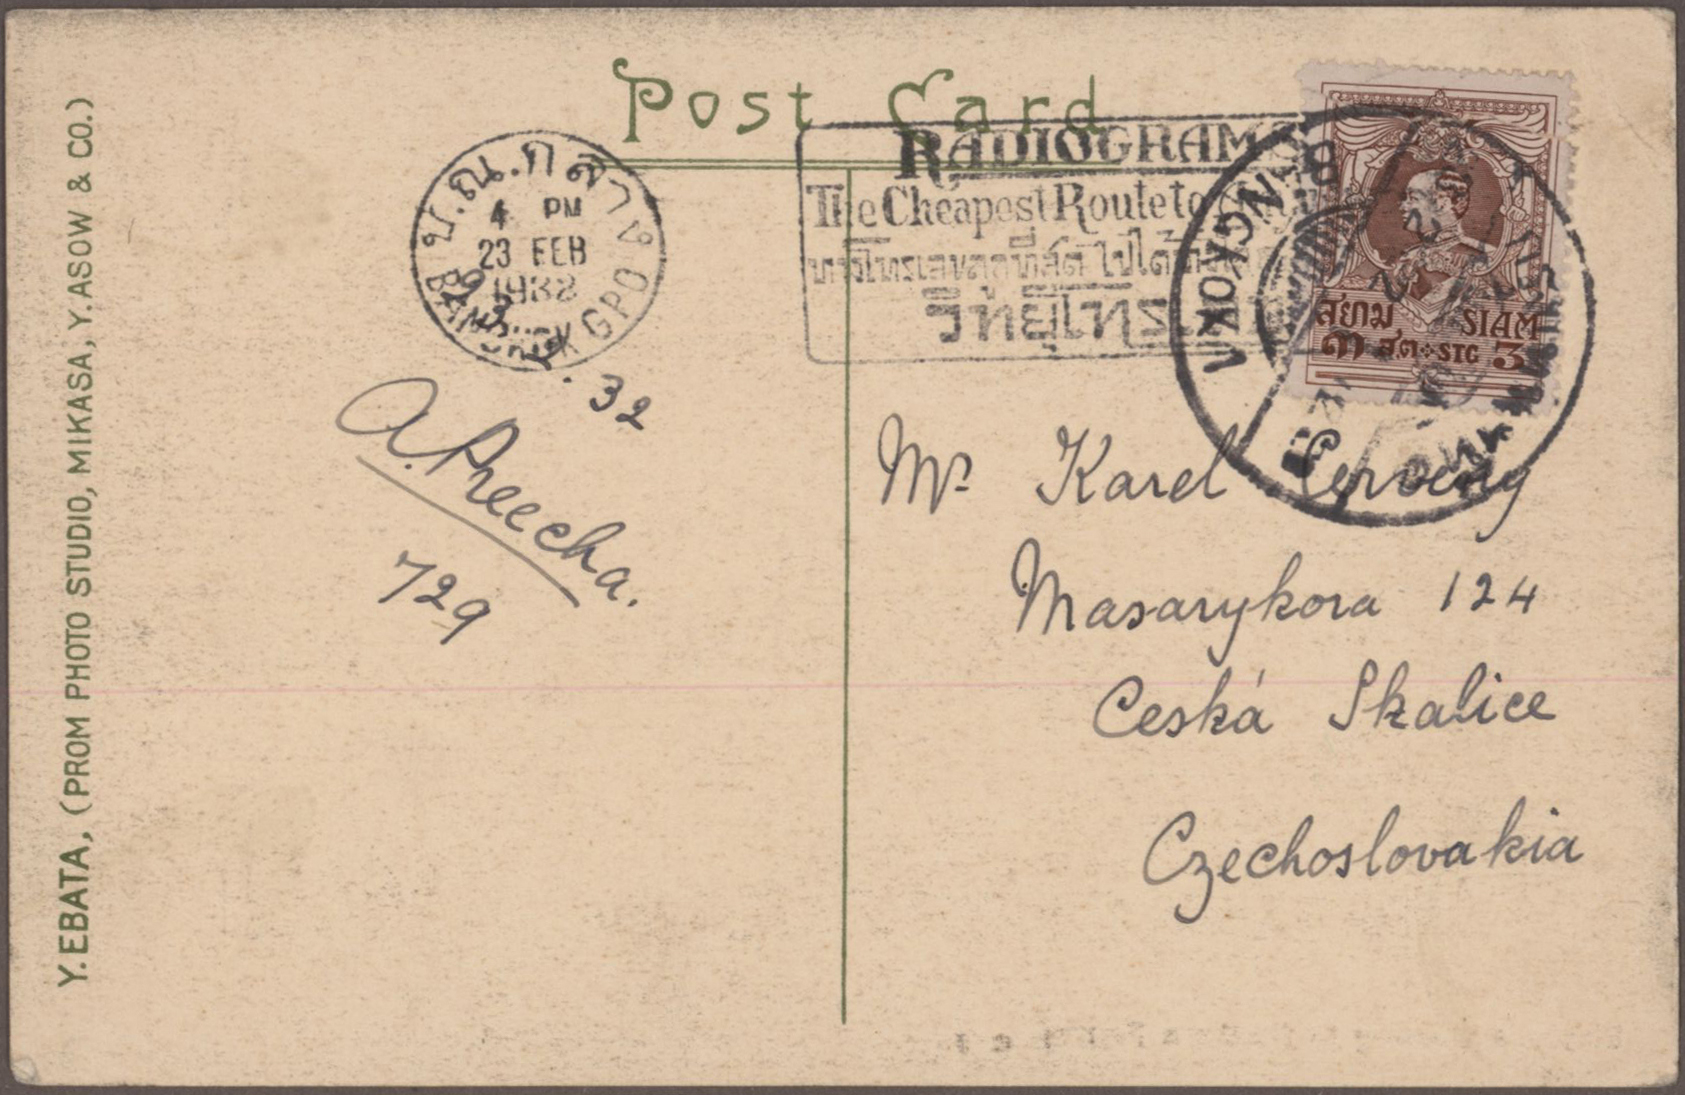 Post Card
Y. EBATA, (PROM PHOTO STUDIO, MIKASA, Y. ASOW & CO.)
ป.ณ.กลาง
4 PM
23 FEB
1932
BANGKOK GPO
RADIOGRAM
The Cheapest Route to
ทางโทรเลขถูกที่สุด ไปได้
วิทยุโทร
BANGKOK
สยาม SIAM
๓ ส.ต. STG 3
32
A. Preecha.
729
Mr Karel Cerveny
Masarykora 124
Ceská Skalice
Czechoslovakia